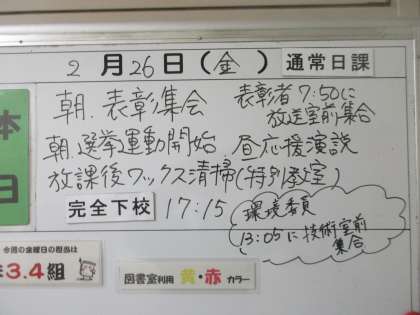 2月26日(金) 通常日課
朝.表彰集会 表彰者7:50に
放送室前集合
朝.選挙運動開始 昼応援演説
放課後ワックス清掃(特別教室)
完全下校 17:15
環境委員
13:05に技術室前
集合
本
日
今週の金曜日の担当は
3.4組
図書室利用 黄・赤 カラー